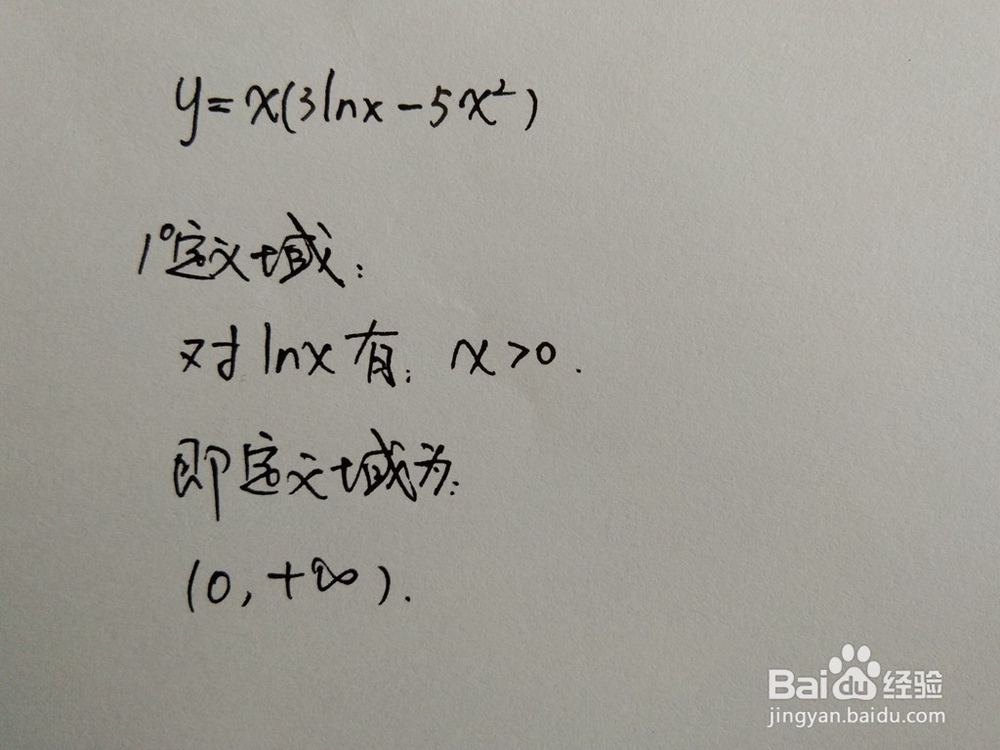 y=x(3lnx-5x²)
1°定义域:
对lnx有: x>0.
即定义域为:
(0,+∞).
Baidu经验
jingyan.baidu.com